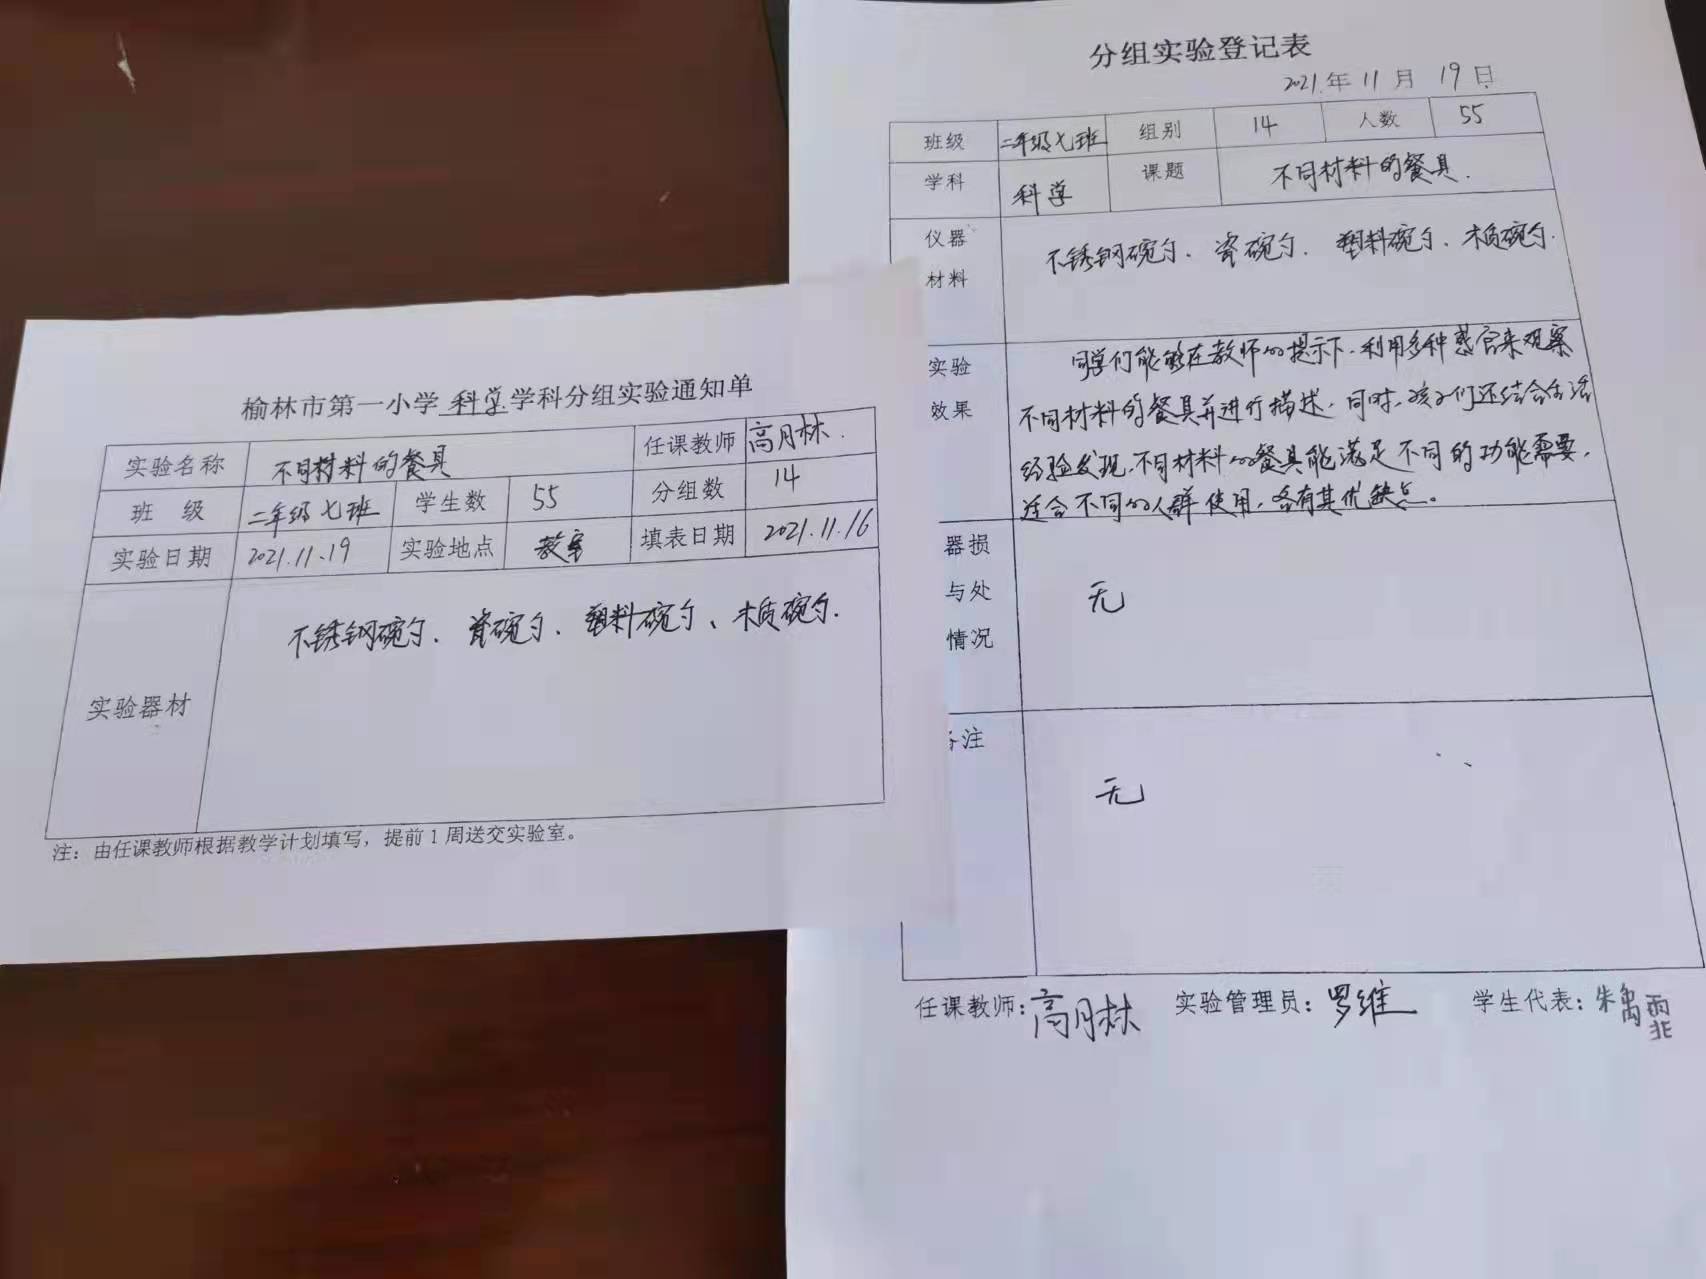 榆林市第一小学 科学 学科分组实验通知单
实验名称 不同材料的餐具 任课教师 高月林.
班 级 二年级七班 学生数 55 分组数 14
实验日期 2021.11.19 实验地点 教室 填表日期 2021.11.16
实验器材 不锈钢碗勺、瓷碗勺、塑料碗勺、木质碗勺.
注：由任课教师根据教学计划填写，提前1周送交实验室。
分组实验登记表
2021.年 11 月 19 日
班级 二年级七班 组别 14 人数 55
学科 科学 课题 不同材料的餐具.
仪器
材料
不锈钢碗勺、瓷碗勺、塑料碗勺、木质碗勺.
实验
效果
同学们能够在教师的提示下，利用多种感官来观察
不同材料的餐具并进行描述，同时，孩子们还结合生活
经验发现，不同材料的餐具能满足不同的功能需要，
适合不同的人群使用，各有其优缺点。
器损
与处
情况
无
注
无
任课教师：高月林 实验管理员：罗维 学生代表：朱